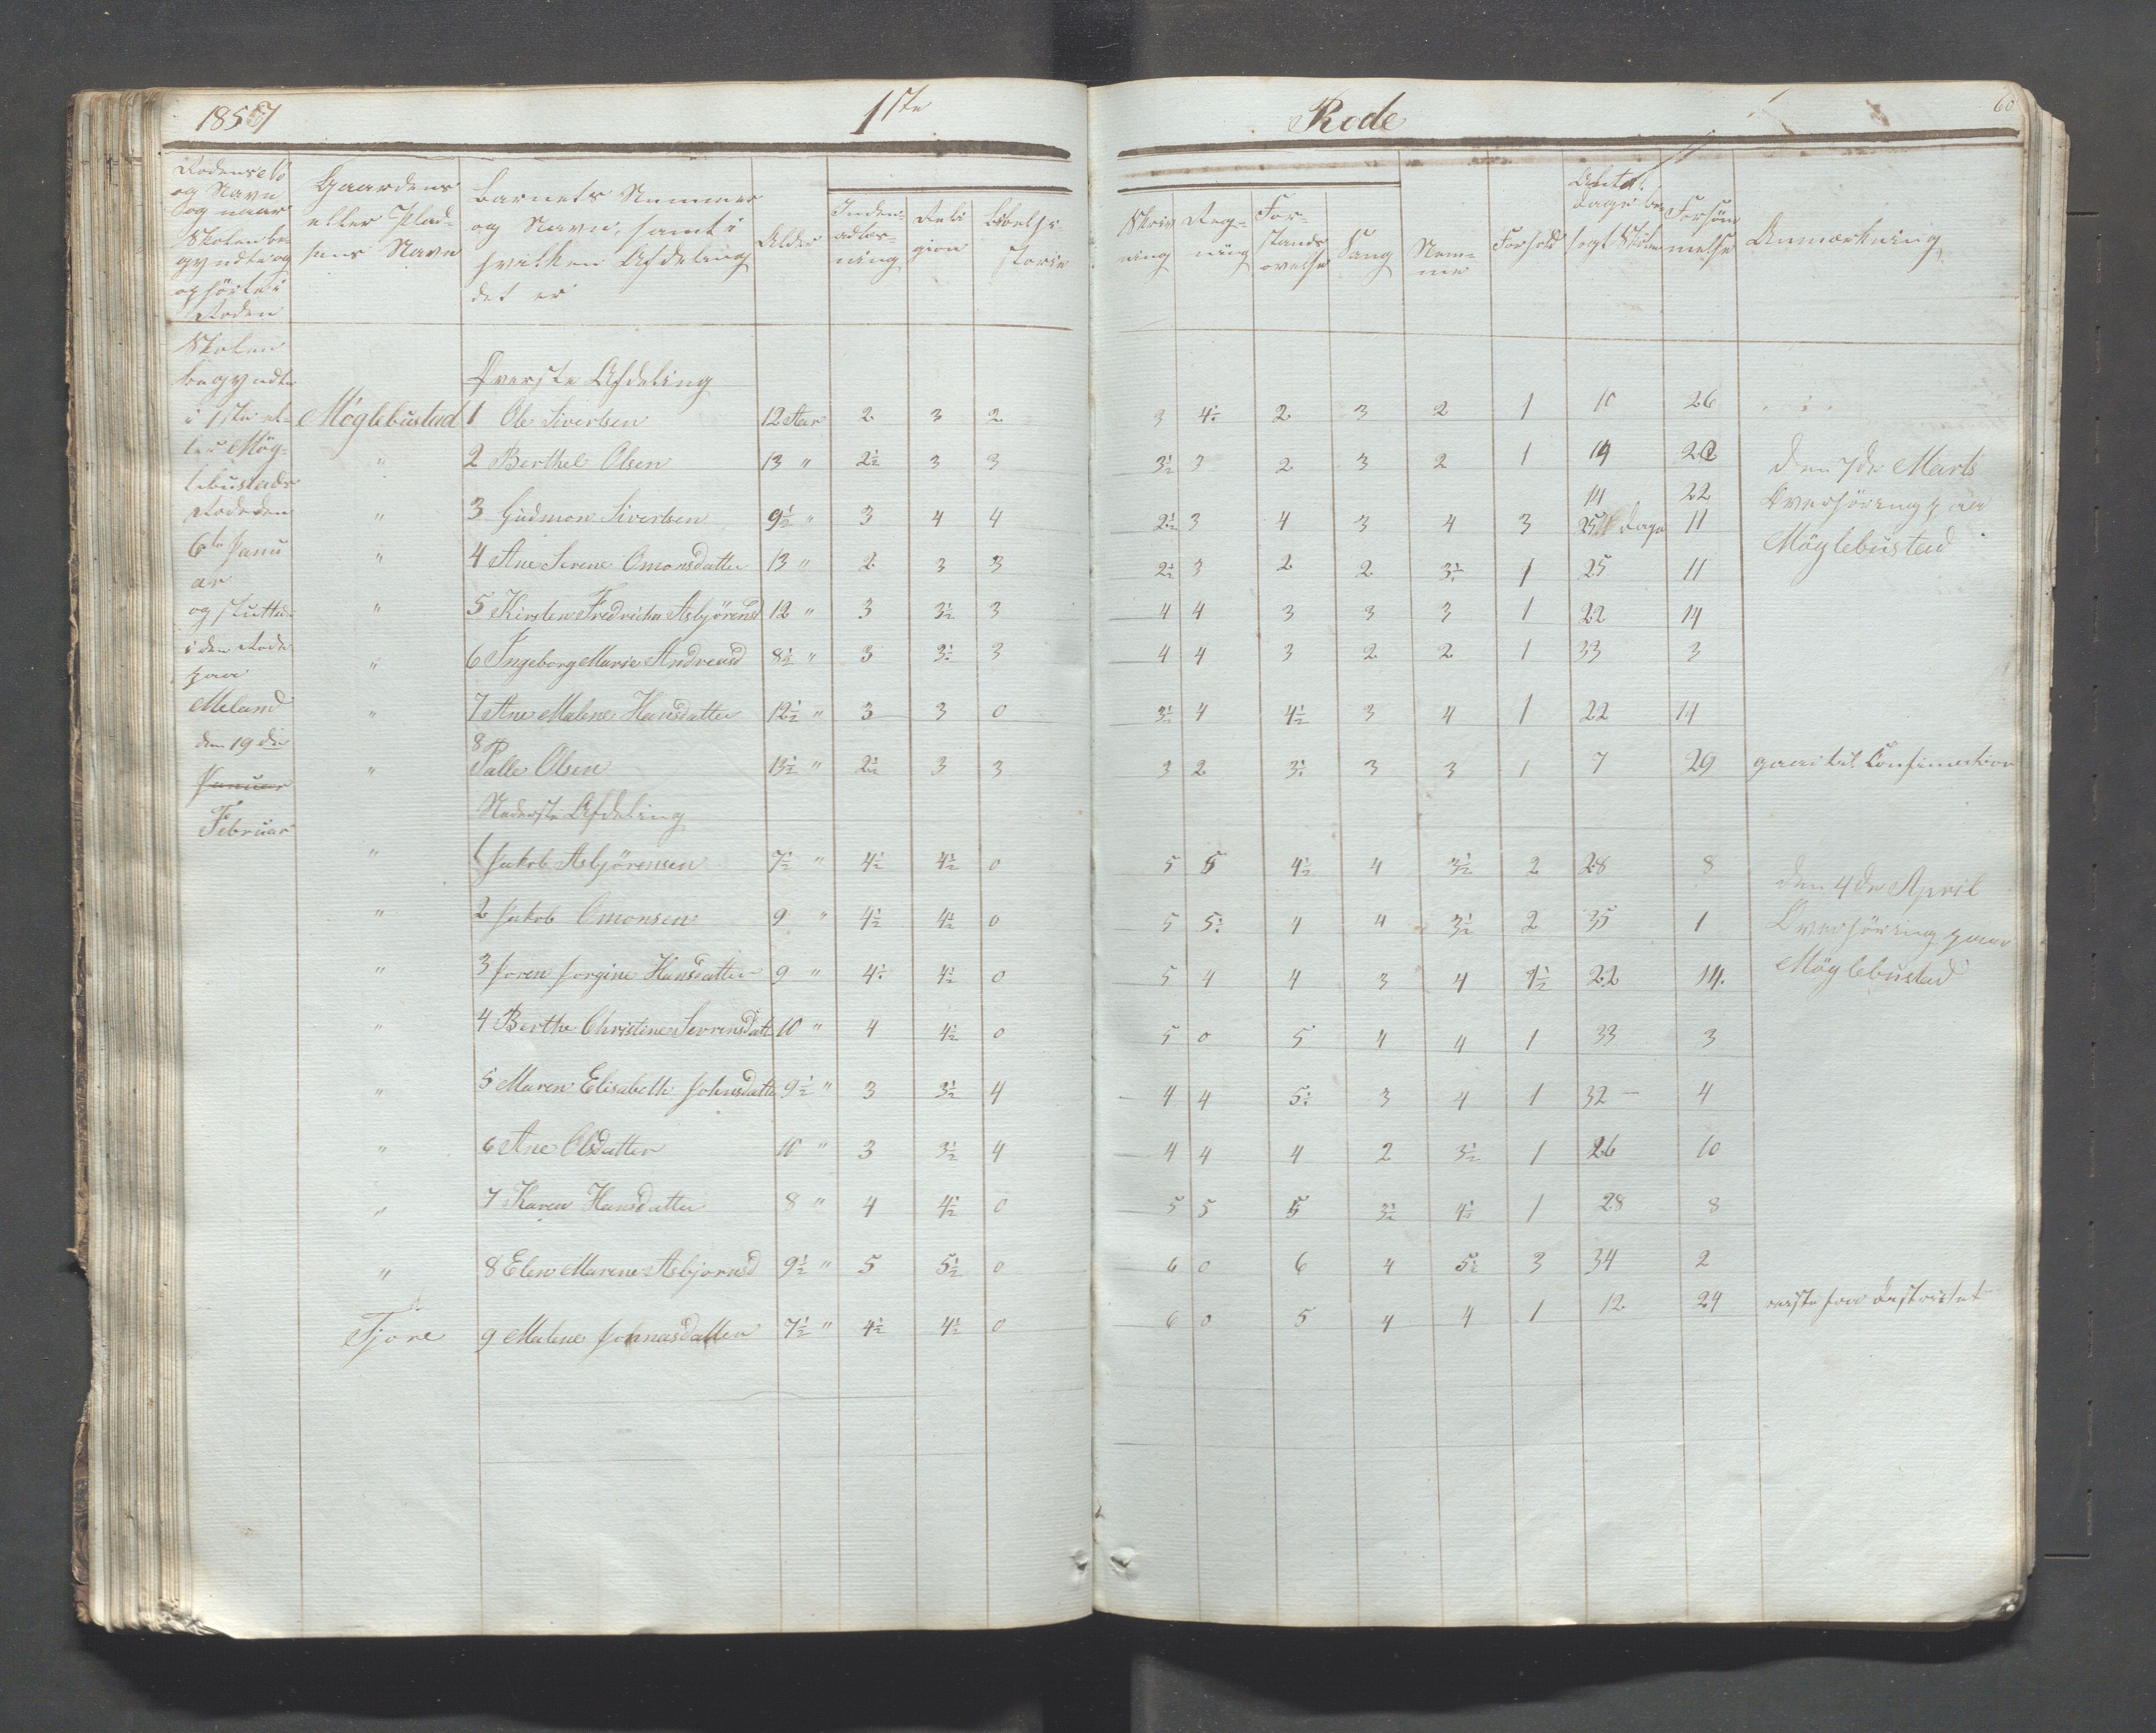 1857
1ste
Rode
60
Rodens No og Navn og naar Skolen begyndte og ophörte i Roden
Gaardens eller Pladsens Navn
Barnets Nummer og Navn, samt i hvilken Afdeling det er
Alder
Inden-adlæs-ning
Reli gion
Bibelhi-storie
Skriv ning
Reg-ning
For-stands övelse
Sang
Nem-me
Forhold
Antal dage be søgt Skolen
Forsöm melse
Anmærkning
Skolen
begyndte
i 1ste el-
ler Mög-
lebustads
Rode den
6te Janu
ar
og sluttede
i den Rode
paa
Meland
den 19de
Januar
Februar
Överste Afdeling
Möglebustad 1 Ole Sivertsen 12 Aar 2 3 2 3 4½ 2 3 2 1 10 26
" 2 Berthel Olsen 13 " 2½ 3 3 3½ 3 2 3 2 1 14 22
14 22
" 3 Gudmon Sivertsen 9½ " 3 4 4 2½ 3 4 3 4 3 25 Dage 11
" 4 Ane Serene Omonsdatter 13 " 2 3 3 2½ 3 2 2 3½ 1 25 11
" 5 Kirsten Fredricka Asbjörensd 12 " 3 3½ 3 4 4 3 3 3 1 22 14
" 6 Ingeborg Marie Andreasd 8½ " 3 3½ 3 4 4 3 2 2 1 33 3
" 7 Ane Malene Hansdatter 12½ " 3 3 0 3½ 4 4½ 3 4 1 22 14
" 8 Palle Olsen 13½ " 2½ 3 3 3 2 3½ 3 3 1 7 29 gaaet til Confirmation
den 7de Marts
Overhöring paa
Möglebustad
Nederste Afdeling
" 1 Jakob Asbjörensen 7½ " 4½ 4½ 0 5 5 4½ 4 3½ 2 28 8
" 2 Jakob Omonsen 9 " 4½ 4½ 0 5 5½ 4 4 3½ 2 35 1
" 3 Joren Jorgine Hansdatter 9 " 4½ 4½ 0 5 4 4 3 4 1½ 22 14
" 4 Berthe Christine Sevrensdatt 10 " 4 4½ 0 5 0 5 4 4 1 33 3
" 5 Maren Elisabeth Johnsdatte 9½ " 3 3½ 4 4 4 5½ 3 4 1 32 4
" 6 Ane Olsdatter 10 " 3 3½ 4 4 4 4 2 3½ 1 26 10
" 7 Karen Hansdatter 8 " 4 4½ 0 5 5 5 3½ 4½ 1 28 8
" 8 Elen Marene Asbjornsd 9½ " 5 5½ 0 6 0 6 4 5½ 3 34 2
Tjore 9 Malene Johnasdatter 7½ " 4½ 4½ 0 6 0 5 4 4 1 12 24 reiste fra Destriktet
den 4de April
Overhöring paa
Möglebustad